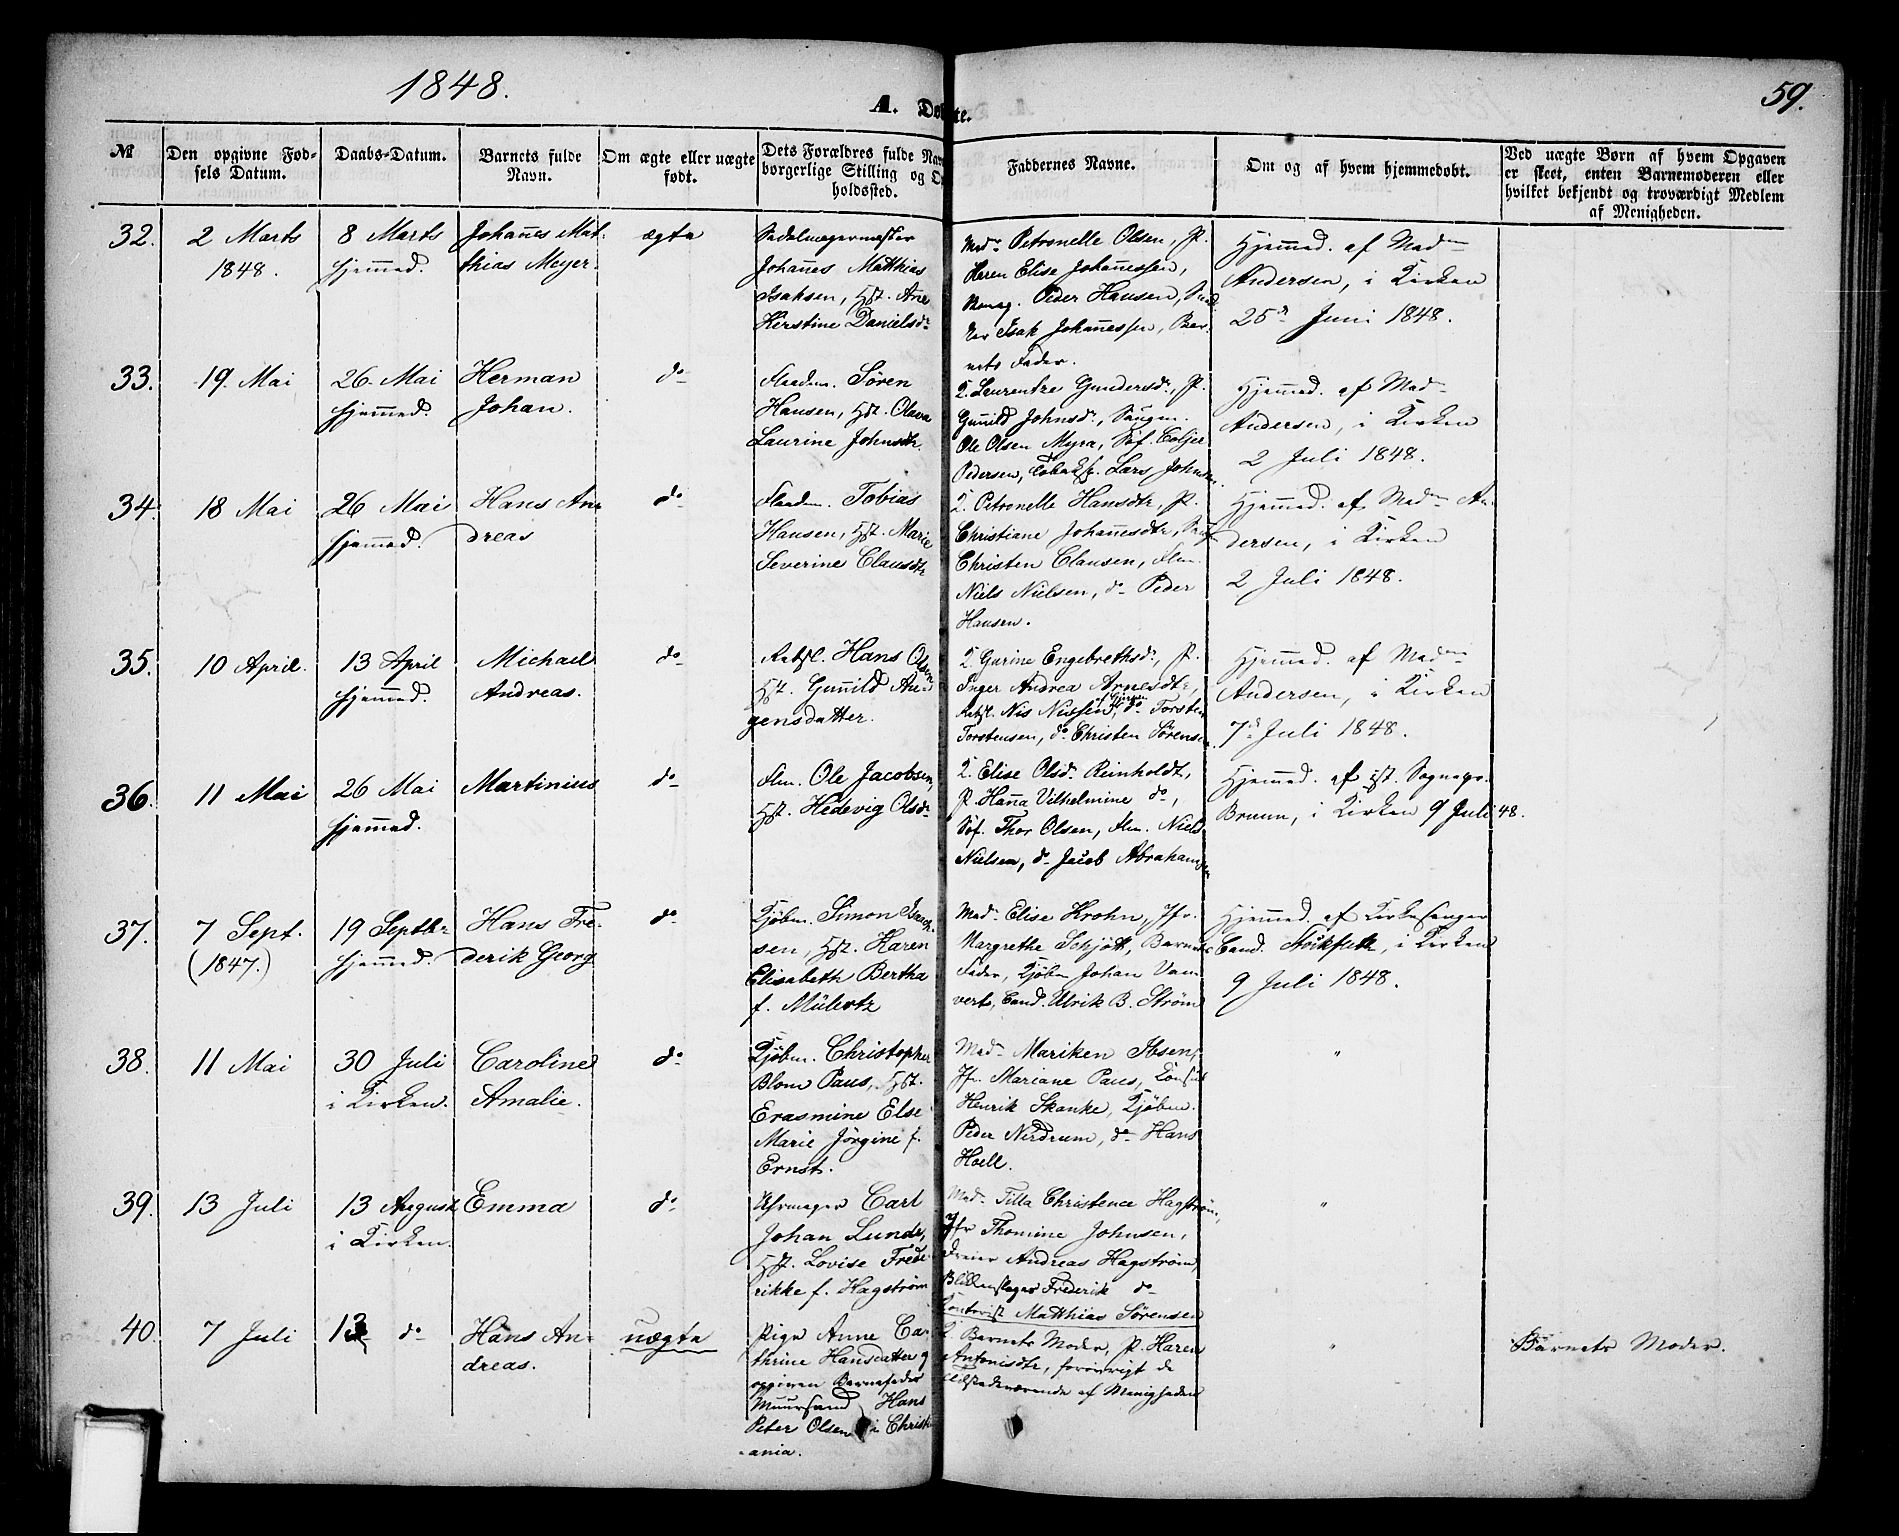 1848.
59.
A. Døbte.
№
Den opgivne Fød-
sels Datum.
Daabs-Datum.
Barnets fulde
Navn.
Om ægte eller uægte
født.
Dets Forældres fulde Nav
borgerlige Stilling og Op
holdssted.
Faddernes Navne.
Om og af hvem hjemmedøbt.
Ved uægte Børn af hvem Opgaven
er skeet, enten Barnemoderen eller
hvilket bekjendt og troværdigt Medlem
af Menigheden.
32.
2 Marts
1848.
8 Marts
hjemmed.
Johanes Mat-
thias Meyer.
ægte
Sadelmagermester
Johanes Matthias
Isaksen, Hst. Ane
Kirstine Danielsdr
Mad. Petronelle Olsen, P.
Karen Elise Johanessen,
Peder Hansen,
Isak Johanessen, Bar-
nets Fader.
Hjemmed. af Madm
Andersen, i Kirken
25d Juni 1848.
33.
19. Mai
26. Mai
hjemmed.
Herman
Johan.
do
Søren
Hansen, Hst. Olava
Laurine Johnsdtr.
Gundersdr, P.
Gunild Johnsdr,
Ole Olsen Myra, Søf.
Pedersen, Lars Johnsen.
Hjemmed. af Madm
Andersen, i Kirken
2 Juli 1848.
34.
18 Mai
26 Mai
hjemmed.
Hans An-
dreas
do
Tobias
Hansen, Hst. Marie
Severine Clausdtr
K. Petronelle Hansdtr, P.
Christiane Johanesdtr,
Christen Clausen, Flm.
Niels Nielsen, do Peder
Hansen.
Hjemmed. af Madm An-
dersen, i Kirken
2 Juli 1848.
35.
10 April.
13 April
hjemmed.
Michael
Andreas.
do
Arbfl. Hans Olsen,
Hst. Gunild An-
gensdatter.
K. Gurine Engebrethsd., P.
Inger Andrea Arnesdtr,
Arbfl. Nis Nielsen, do Torsten
Torstensen, do Christen Sørensen.
Hjemmed. af Madm
Andersen, i Kirken
7d Juli 1848.
36.
11 Mai
26 Mai
hjemmed.
Martinius
do
Flm. Ole Jacobsen,
Hst. Hedevig Olsdr
K. Elise Olsdr Reinholdt,
P. Hanna Vilhelmine do,
Søf. Thor Olsen, Flm. Niels
Nielsen, do Jacob Abrahamsen
Hjemmed. af Sognepr.
Bruun, i Kirken 9 Juli 48.
37.
7 Sept.
(1847.)
19 Septbr
hjemmed.
Hans Fre-
derik Georg
do
Kjøbm. Simon Isach-
sen, Hst. Karen
Elisabeth Bertha
f. Müllertz
Mad. Elise Krohn, Jfr.
Margrethe Schjøtt, Barnets
Fader, Kjøbm Johan Van-
verts, Cand. Ulrik B. Strøm
Hjemmed. af Kirkesanger
Cand. Stockfleth, i Kirken
9 Juli 1848.
38.
11 Mai
30 Juli
i Kirken.
Caroline
Amalie.
do
Kjøbm. Christopher
Blom Paus, Hst.
Erasmine Else
Marie Jørgine f.
Ernst.
Mad. Mariken Ibsen,
Jfr. Mariane Paus, Konsul
Henrik Skanke, Kjøbm.
Peder Nirdrum, do Hans
Hoell.
"
39.
13 Juli
13 August
i Kirken.
Emma
do
Uhrmager Carl
Johan Lunde,
Hst. Lovise Frede-
rikke f. Hagstrøm
Mad. Tilla Christence Hagstrøm,
Jfr Thomine Johnsen,
Dreier Andreas Hagstrøm,
Blikkenslager Frederik do
Kontorist Matthias Sørensen
"
40.
7 Juli
13 do
Hans An-
dreas.
uægte
Pige Anne Ca-
thrine Hansdatter og
opgiven Barnefader
Muursvend Hans
Peter Olsen i Christi-
ania.
K. Barnets Moder, P. Karen
Antonisdtr, forøvrigt de
tilstedeværende af Menigheden
"
Barnets Moder.